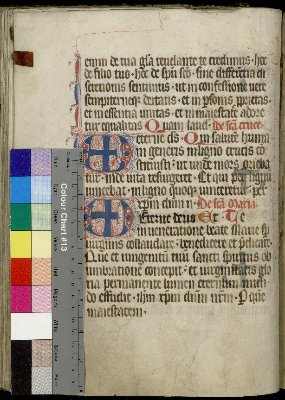 enim de tua gl̃a reuelante te credimus. hoc
de filio tuo. hoc de sp̃u sc̃o. sine differentia di
scretionis sentimus. ut in confessione uere
sempiterneq̃ deitatis. et in p̃sonis p̃prietas
et in essentia unitas. et in maiestate adore
tur equalitas. Quam laud. De sc̃a cruce.
Eterne ds. Qui salutē huma
ni generis in ligno crucis cō
stituisti. ut unde mors orieba
tur. inde uita resurgeret. Et qui per lignū
uincebat. in ligno quoq̃ uinceretur. per
xp̃m dñm n̄. De sc̃a Maria.
Eterne deus Et Te
in ueneratione beate Marie
uirginis collaudare. benedicere et p̃dicare.
Que et unigenitū tuū sancti spiritus ob
umbratione concepit. et uirginitatis glo
ria permanente lumen eternū mun
do effudit. ihm̃ xp̃m dñm nr̃m. P quē
maiestatem.
Colour Chart #13